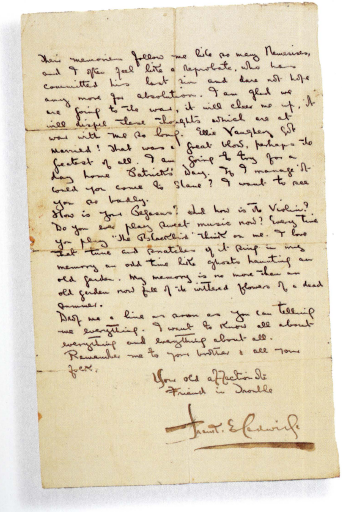 Their memories follow me like so many Nemesises,
and I often feel like a reprobate, who has
committed his last sin and dare not hope
any more for absolution. I am glad we
are going to the war, it will cheer me up, it
will dispel these thoughts which are at
war with me so long. Ellie Vaughey got
married! That was a great blow, perhaps the
greatest of all. I am going to try for a
day home Patrick's Day. If I manage it
could you come to Slane? I want to see
you so badly.
How is your Pegasus? And how is the Violin?
Do you ever play sweet music now? Every time
you play "The Blackbird" think on me. I love
that tune and snatches of it ring in my
memory an odd time like ghosts haunting an
old garden. My memory is no more than an
old garden now full of the withered flowers of a dead
summer.
Drop me a line as soon as you can telling
me everything. I want to know all about
everything and everything about all.
Remember me to your brother & all your
Your old affectionate
Friend in trouble
E Ledwidge